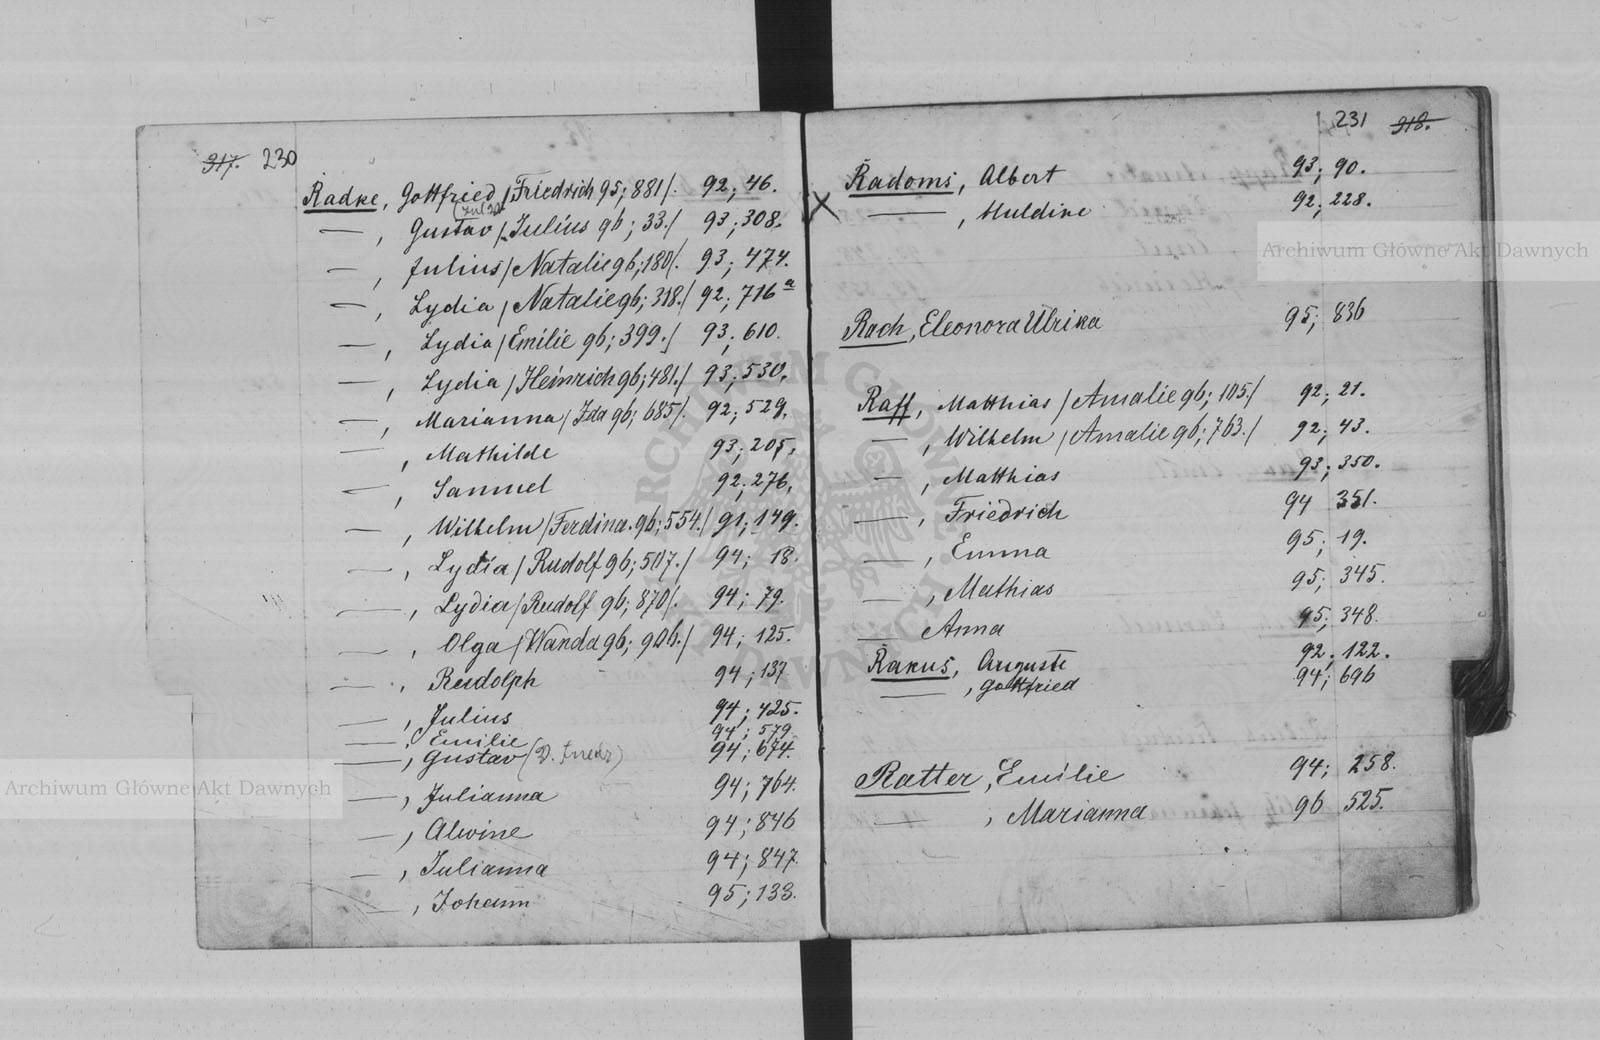 317. 230
Radke, Gottfried /Friedrich 95; 881/. 92; 46.
—, Gustav /Julius 96; 33./ 93; 308.
—, Julius /Natalie 96; 180/. 93; 474.
—, Lydia /Natalie 96; 318./ 92; 716 a
—, Lydia /Emilie 96; 399./ 93; 610.
—, Lydia /Heinrich 96; 481./ 93; 530.
—, Marianna /Ida 96; 685/. 92; 529.
—, Mathilde 93; 205.
—, Samuel 92; 276.
—, Wilhelm /Ferdina. 96; 554./ 91; 149.
—, Lydia /Rudolf 96; 507./ 94; 18.
—, Lydia /Rudolf 96; 870/. 94; 79.
—, Olga /Wanda 96; 906./ 94; 125.
—, Rudolph 94; 137
—, Julius 94; 425.
—, Emilie 94; 579.
—, Gustav 94; 674.
—, Julianna 94; 764.
—, Alwine 94; 846
—, Julianna 94; 847
—, Johann 95; 133.
231 318.
Radoms, Albert 93; 90.
X —, Huldine 92; 228.
Rach, Eleonora Ulrika 95; 836
Raff, Matthias /Amalie 96; 105./ 92; 21.
—, Wilhelm /Amalie 96; 763./ 92; 43.
—, Matthias 93; 350.
—, Friedrich 94 351.
—, Emma 95; 19.
—, Mathias 95; 345.
— Anna 95; 348.
Rakus, Auguste 92; 122.
—, Gottfried 94; 696
Ratter, Emilie 94; 258.
—, Marianna 96 525.
Archiwum Główne Akt Dawnych
Archiwum Główne Akt Dawnych
ARCHIWUM GŁÓWNE AKT DAWNYCH